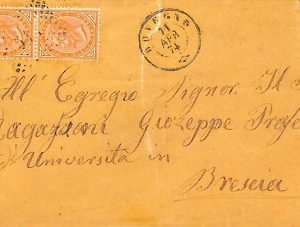 BOVEGNO
21
APR
74
All' Egregio Signor Il S
Ragazzoni Giuseppe Profe
Università in
Brescia